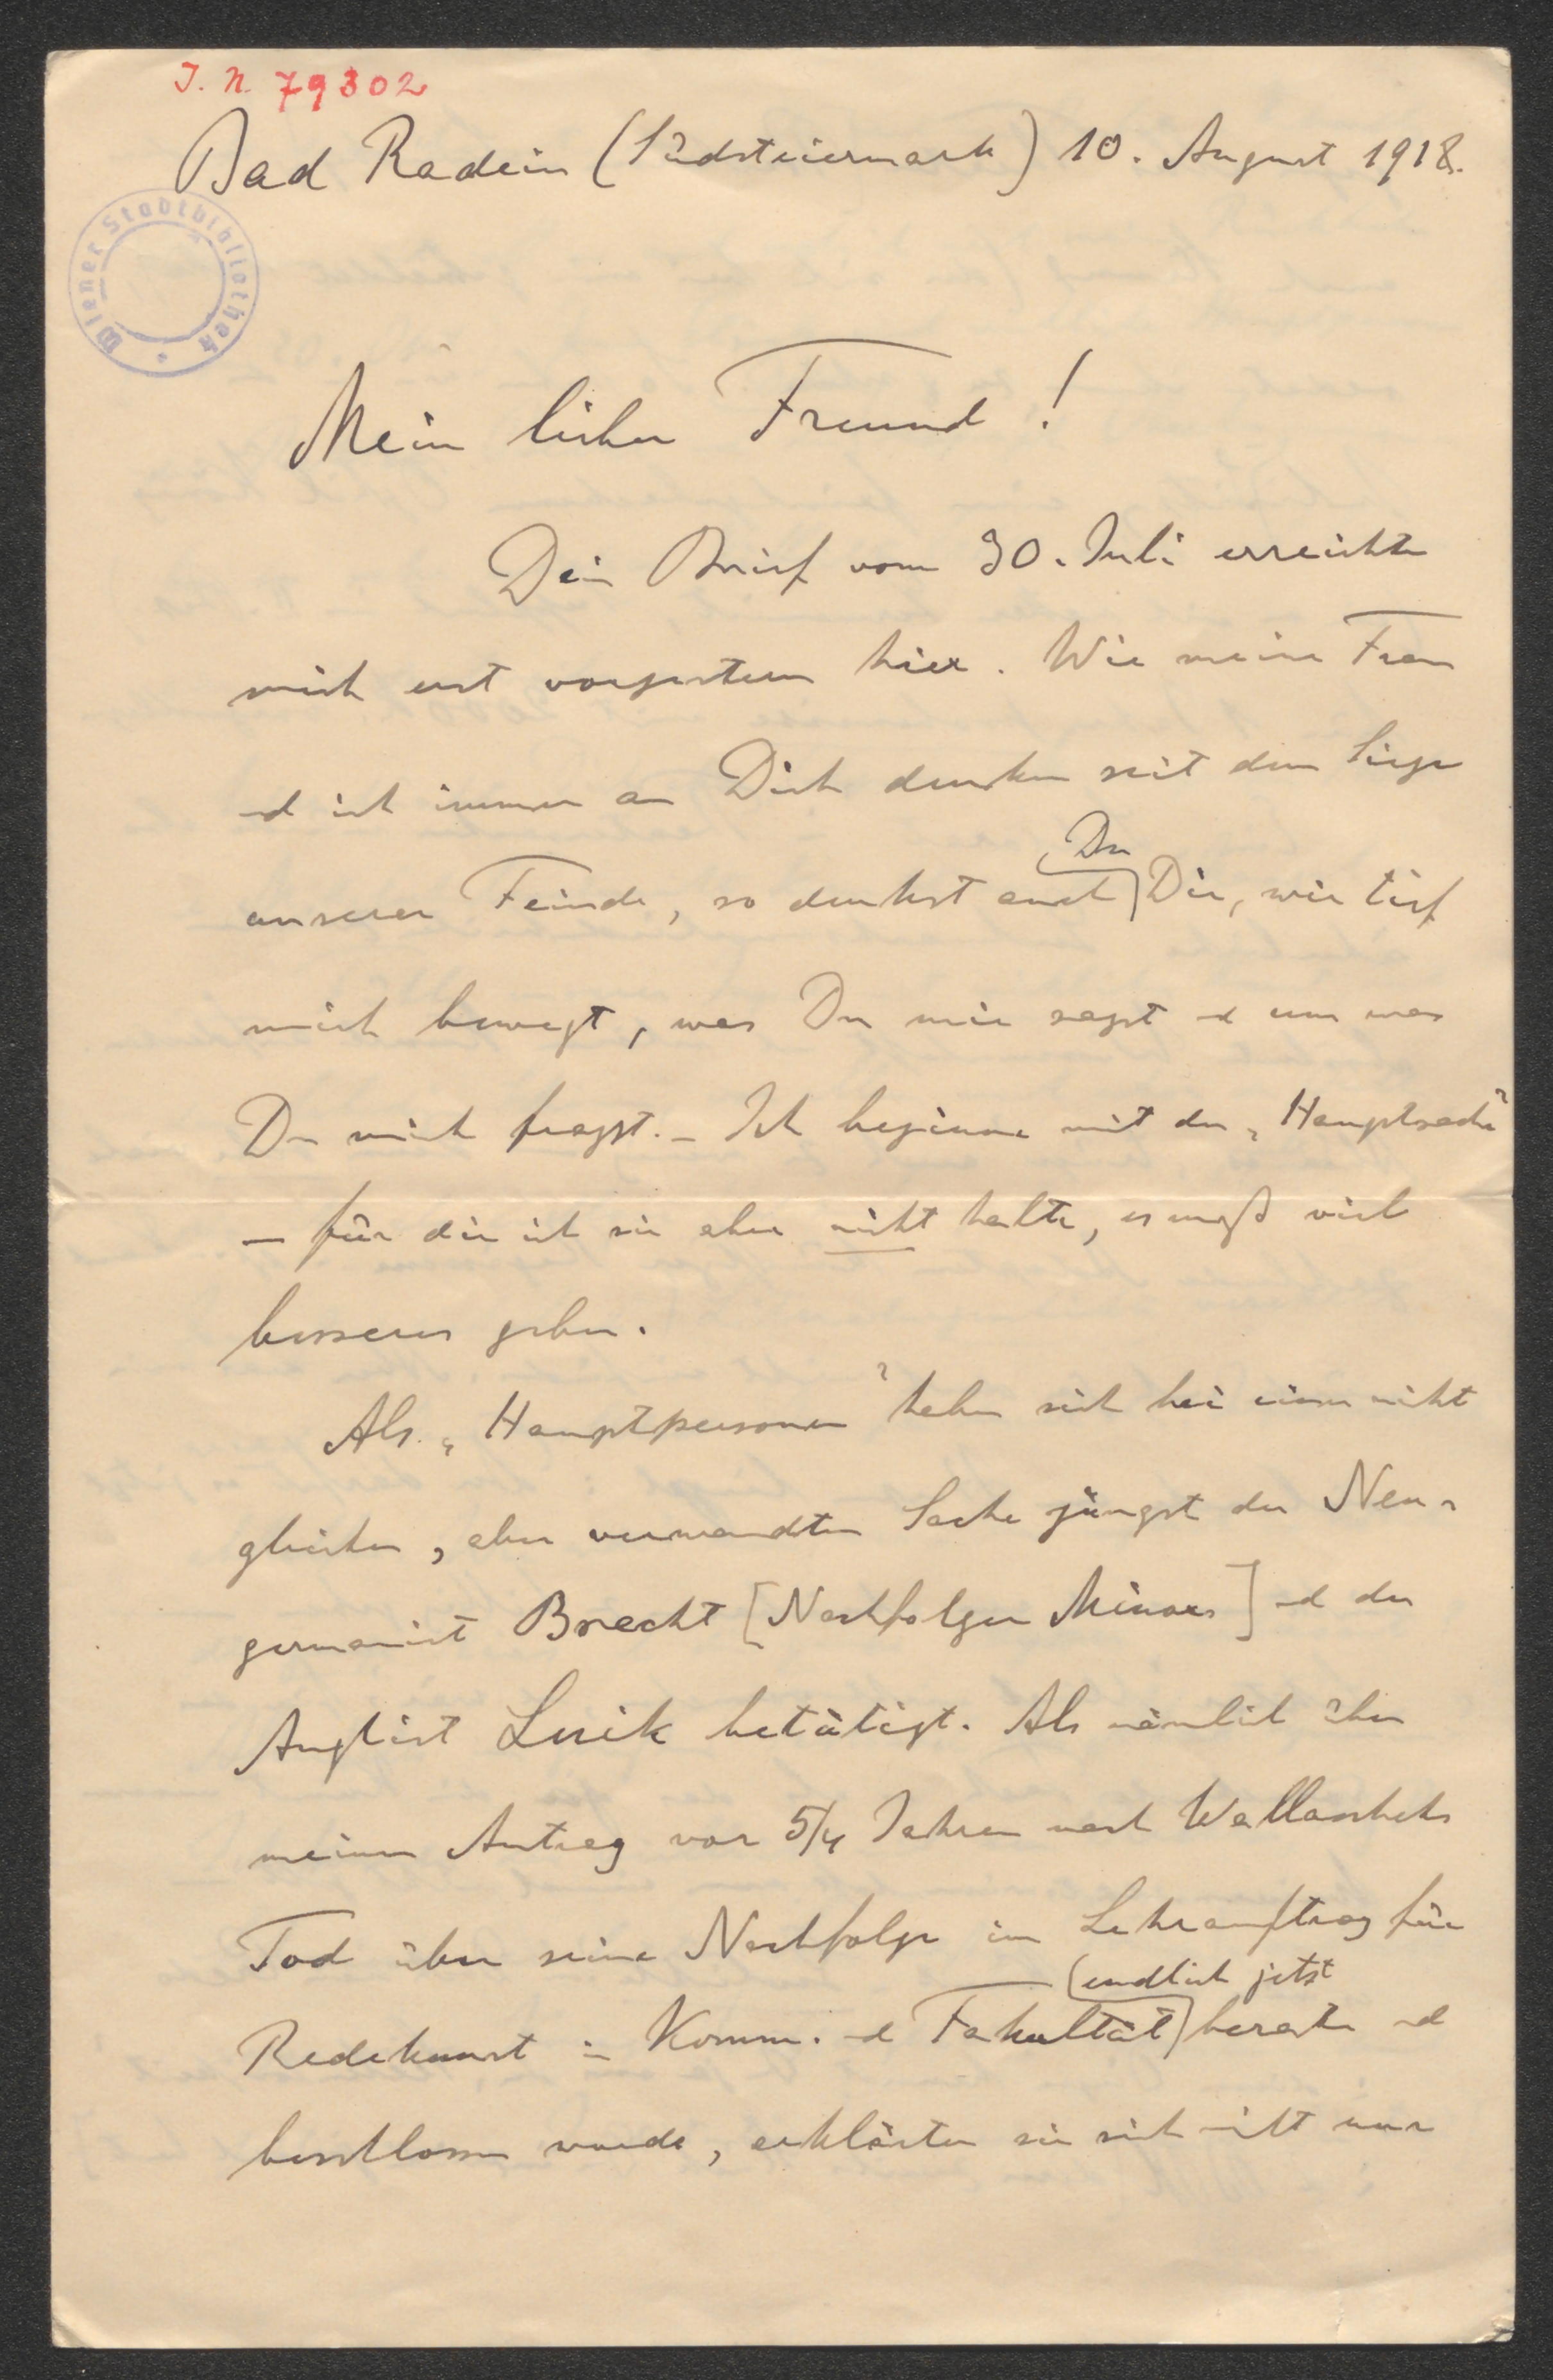 J. N. 79302
Bad Radein (Südsteiermark) 10. August 1918.
Wiener Stadtbibliothek
Mein lieber Freund!
Dein Brief vom 30. Juli erreichte
mich erst vorgestern hier. Wie meine Frau
u ich immer an Dich denken seit dem Siege
unserer Feinde, so denkst auch Du Dir, wie tief
mich bewegt, was Du mir sagst u um was
Du mich fragst. – Ich beginne mit der „Hauptsache“
– für die ich sie aber nicht halte, es muß viel
besseres geben.
Als „Hauptpersonen“ haben sich bei einer nicht
gleichen, aber verwandten Sache jüngst der Neu-
germanist Brecht [Nachfolger Minors] u der
Anglist Luick betätigt. Als nämlich über
meinen Antrag vor 5/4 Jahren nach Wallascheks
Tod über seine Nachfolge im Lehrauftrag für
Redekunst in Komm. u Fakultät endlich jetzt beraten u
beschlossen wurde, erklärten sie sich nicht nur